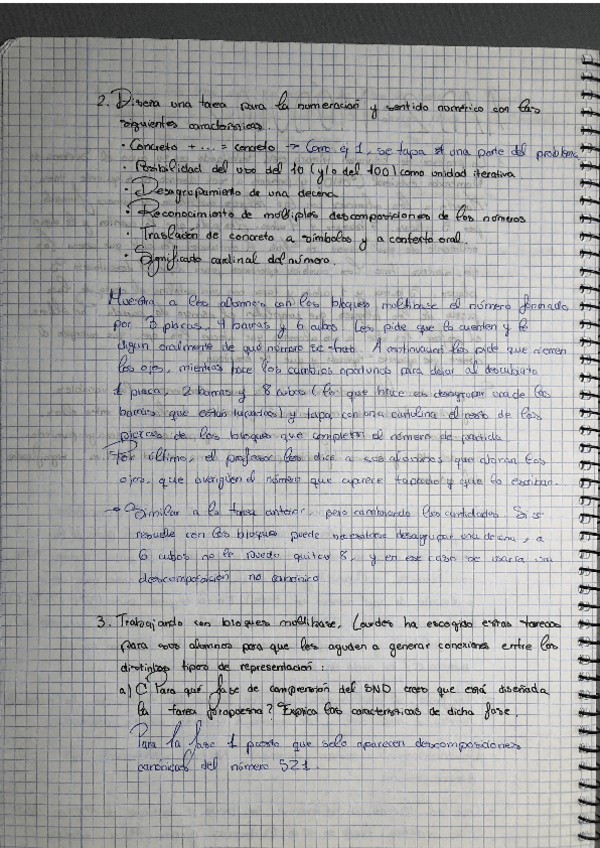 2. Diseña una tarea para la numeración y sentido numérico con las
siguientes características.
· Concreto + ... = concreto -> Como ej 1, se tapa una parte del problema
· Posibilidad del uso del 10 (y/o del 100) como unidad iterativa.
· Desagrupamiento de una decena
· Reconocimiento de múltiples descomposiciones de los números
· Traslación de concreto a símbolos y a contexto oral.
· Significado cardinal del número.
Muestra a los alumnos con los bloques multibase el número formado
por 3 placas, 4 barras y 6 cubos. Les pide que lo cuenten y le
digan oralmente de qué número se trata. A continuación les pide que cierren
los ojos, mientras hace los cambios oportunos para dejar al descubierto
1 placa, 2 barras y 8 cubos (lo que hace es desagrupar una de las
barras que están) y tapa con una cartulina el resto de las
piezas de los bloques que completan el número de partida.
Por último, el profesor les dice a sus alumnos que abran los
ojos, que averigüen el número que aparece tapado y que lo escriban.
-> Similar a la tarea anterior, pero cambiando las cantidades. Si se
resuelve con los bloques puede necesitarse desagrupar una decena, a
6 cubos no le puedo quitar 8, y en ese caso se usaría una
descomposición no canónica
3. Trabajando con bloques multibase, Lourdes ha escogido estas tareas
para sus alumnos para que les ayuden a generar conexiones entre los
distintos tipos de representación:
a) ¿Para qué fase de comprensión del SND crees que está diseñada
la tarea propuesta? Explica las características de dicha fase.
Para la fase 1 puesto que solo aparecen descomposiciones
canónicas del número 521.